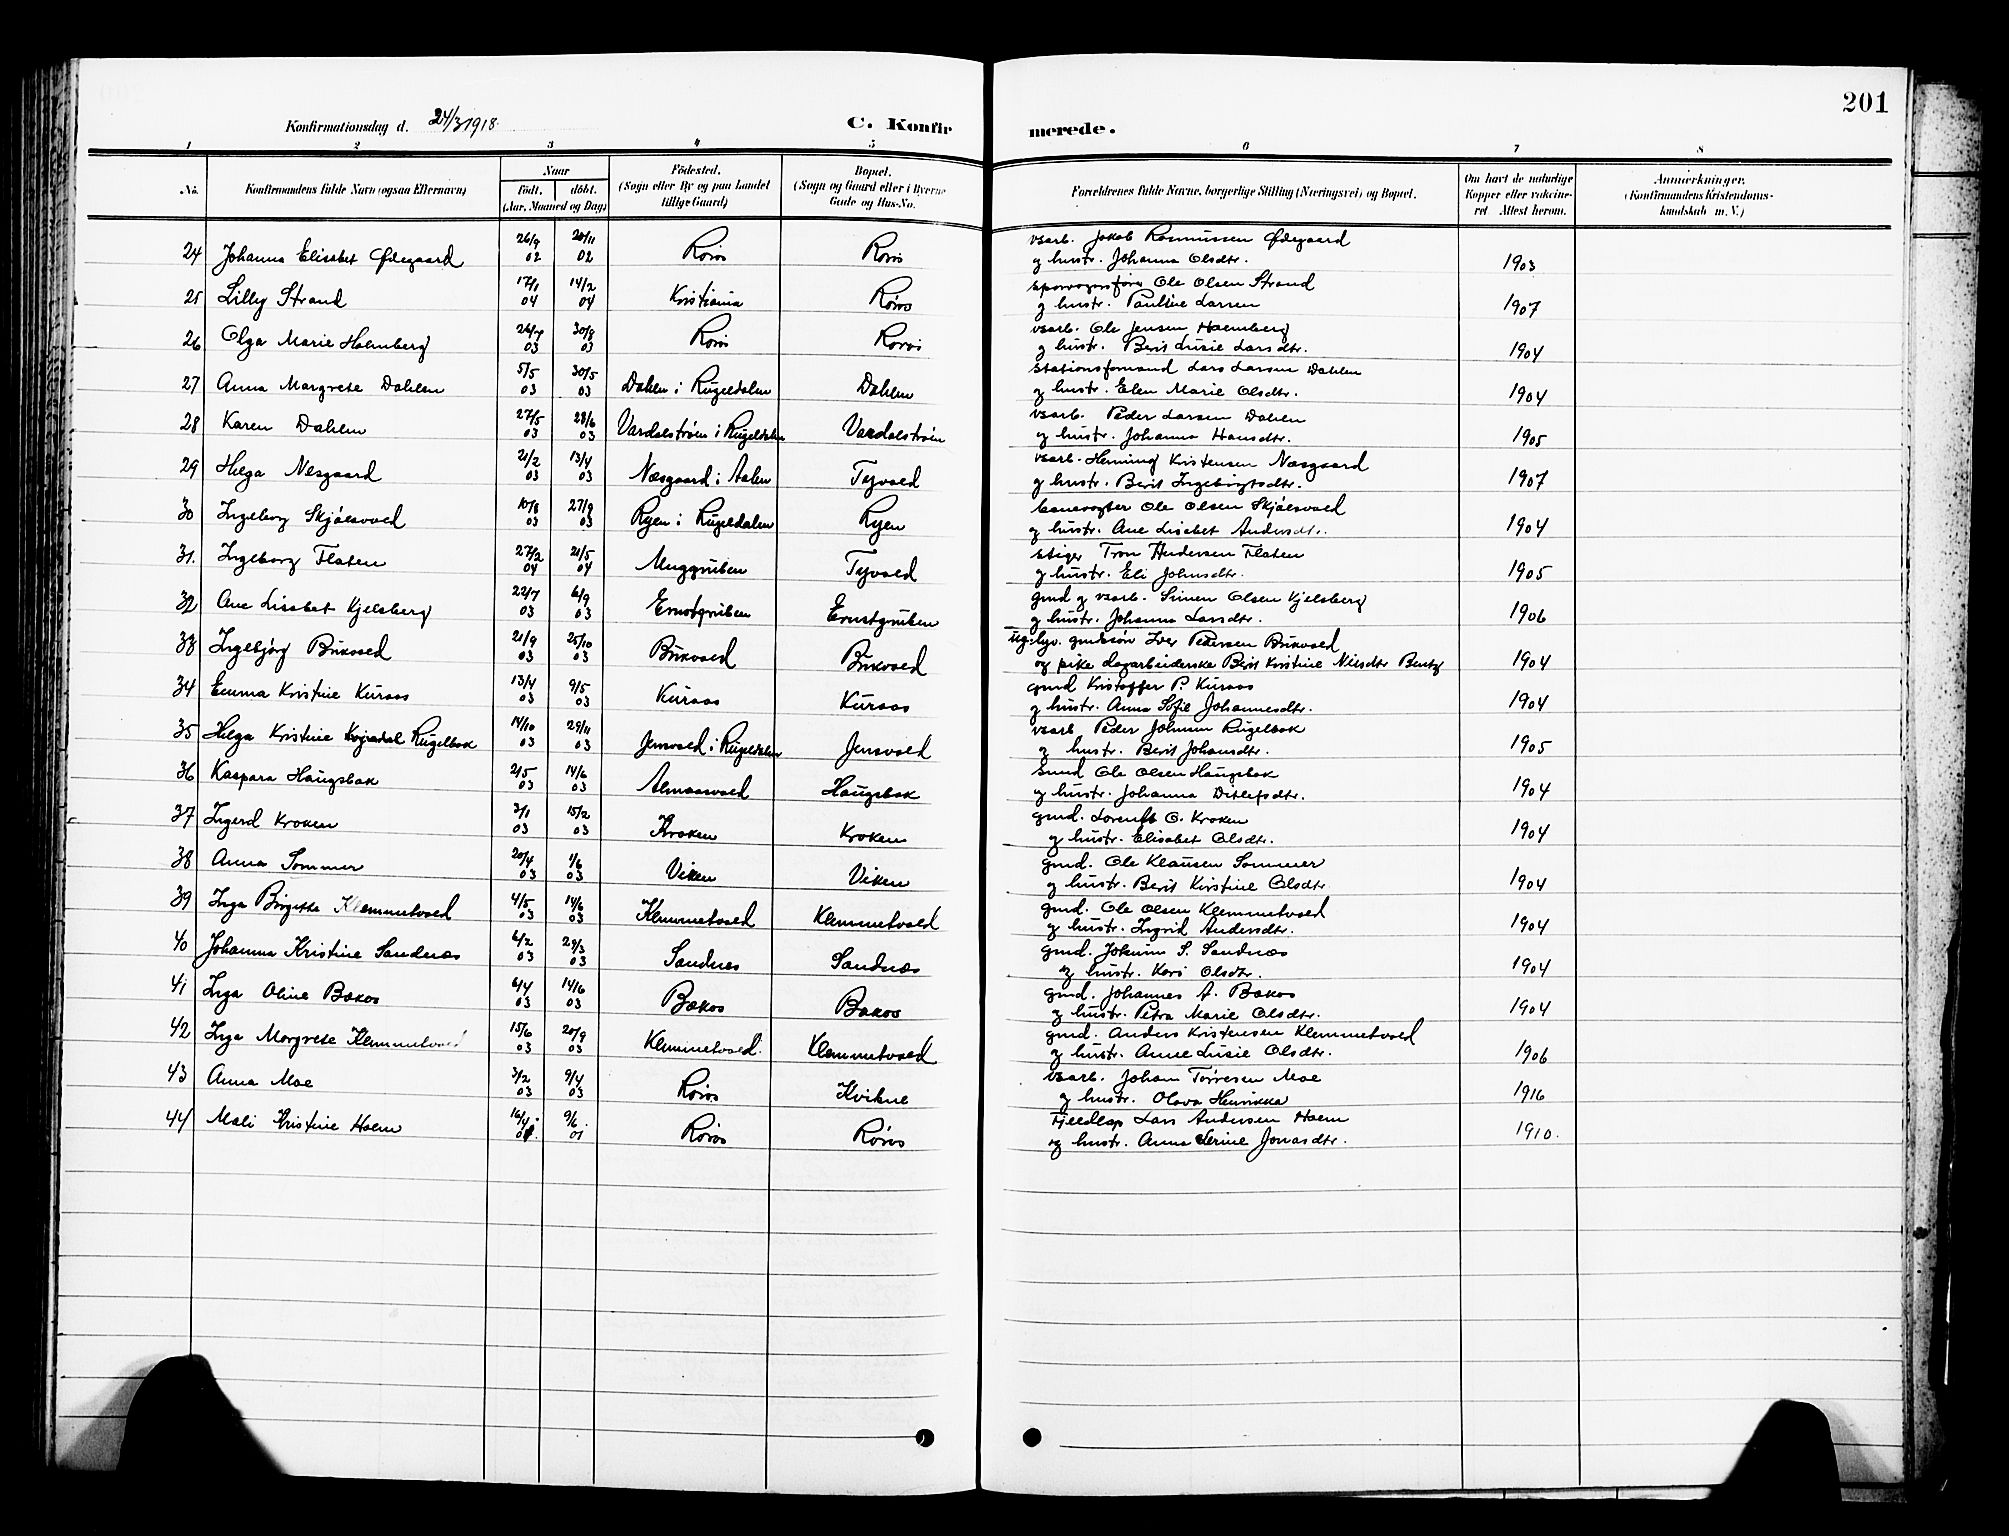 201
Konfirmationsdag d. 24/3 1918. C. Konfirmerede.
1 2 3 4 5 6 7 8
No. Konfirmandens fulde Navn (ogsaa Efternavn) Naar födt. döbt. (Aar, Maaned og Dag) Födested. (Sogn eller By og paa Landet tillige Gaard) Bopæl. (Sogn og Gaard eller i Byerne Gade og Hus-No. Forældrenes fulde Navne, borgerlige Stilling (Næringsvei) og Bopæl. Om havt de naturlige Kopper eller vakcineret Attest herom. Anmærkninger. (Konfirmandens Kristendomskundskab m. V.)
24 Johanna Elisabet Ødegaard 26/9 02 20/11 02 Røros Røros vsarb. Jakob Rasmussen Ødegaard
og hustr. Johanna Olsdtr. 1903
25 Lilly Strand 17/1 04 14/2 04 Kristiania Røros Sporvognsfører Ole Olsen Strand
og hustr. Pauline Larsen 1907
26 Olga Marie Holmberg 26/7 03 30/8 03 Røros Røros vsarb. Ole Jensen Holmberg
og hustr. Berit Lusie Larsdtr. 1904
27 Anna Margrete Dahlen 5/5 03 30/5 03 Dahlen i Rugeldalen Dahlen Stationsformand Lars Larsen Dahlen
og hustr. Elen Marie Olsdtr. 1904
28 Karen Dahlen 27/5 03 28/6 03 Vardalstrøen i Rugeldalen Vardalstrøen vsarb. Peder Larsen Dahlen
og hustr. Johanna Hansdtr. 1905
29 Helga Nesgaard 21/2 03 13/4 03 Næsgaard i Aalen Tyvold vsarb. Henning Kristensen Næsgaard
og hustr. Berit Ingebrigtsdtr. 1907
30 Ingeborg Skjølsvold 10/8 03 27/9 03 Ryen i Rugeldalen Ryen banevogter Ole Olsen Skjølsvold
og hustr. Ane Lisabet Andersdtr. 1904
31. Ingeborg Flaten 27/2 04 21/5 04 Muggruben Tyvold stiger Tron Andersen Flaten
og hustr. Eli Johnsdtr. 1905
32 Ane Lisabet Kjelsberg 22/7 03 6/9 03 Ernstgruben Ernstgruben gmd og vsarb. Simen Olsen Kjelsberg
og hustr. Johanna Larsdtr. 1906
33 Ingebjørg Bukvold 21/9 03 25/10 03 Bukvold Bukvold ug. Iver Pedersen Bukvold
og pike dagarbeiderske Berit Kristine Nilsdtr 1904
34 Emma Kristine Kuraas 13/4 03 9/5 03 Kuraas Kuraas gmd Kristoffer P. Kuraas
og hustr. Anna Sofie Johannesdtr. 1904
35 Helga Kristine Rugelbak 14/10 03 29/11 03 Jensvold i Rugeldalen Jensvold vsarb Peder Johnsen Rugelbak
og hustr. Berit Johansdtr. 1905
36 Kaspara Haugsbak 2/5 03 14/6 03 Almaasvold Haugsbak Gmd Ole Olsen Haugsbak
og hustr. Johanna Ditlefsdtr. 1904
37 Ingerd Kroken 3/1 03 15/2 03 Kroken Kroken gmd. Lorents O. Kroken
og hustr. Elisabet Olsdtr. 1904
38 Anna Sommer 20/4 03 1/6 03 Viken Viken gmd. Ole Klausen Sommer
og hustr. Berit Kirstine Olsdtr 1904
39 Inga Birgitte Klemmetvold 4/5 03 14/6 03 Klemmetvold Klemmetvold gmd. Ole Olsen Klemmetvold
og hustr. Ingrid Andersdtr. 1904
40 Johanna Kristine Sandnæs 6/2 03 29/3 03 Sandnæs Sandnæs gmd. Jokum S. Sandnæs
og hustr. Kari Olsdtr. 1904
41 Inga Oline Bakos 6/4 03 14/6 03 Bakos Bakos gmd. Johannes A. Bakos
og hustr. Petra Marie Olsdtr. 1904
42 Inga Margrete Klemmetvold 15/6 03 20/9 03 Klemmetvold. Klemmetvold gmd. Anders Kristensen Klemmetvold
og hustr. Anne Lusie Olsdtr. 1906
43 Anna Moe 3/2 03 9/4 03 Røros Kvikne vsarb. Johan Tørresen Moe
og hustr. Olava Henrikka 1916
44 Mali Kristine Holm 16/4 01. 9/6 01 Røros Røros Fjeldlap Lars Andersen Holm
og hustr. Anna Serine Jonasdtr. 1910.